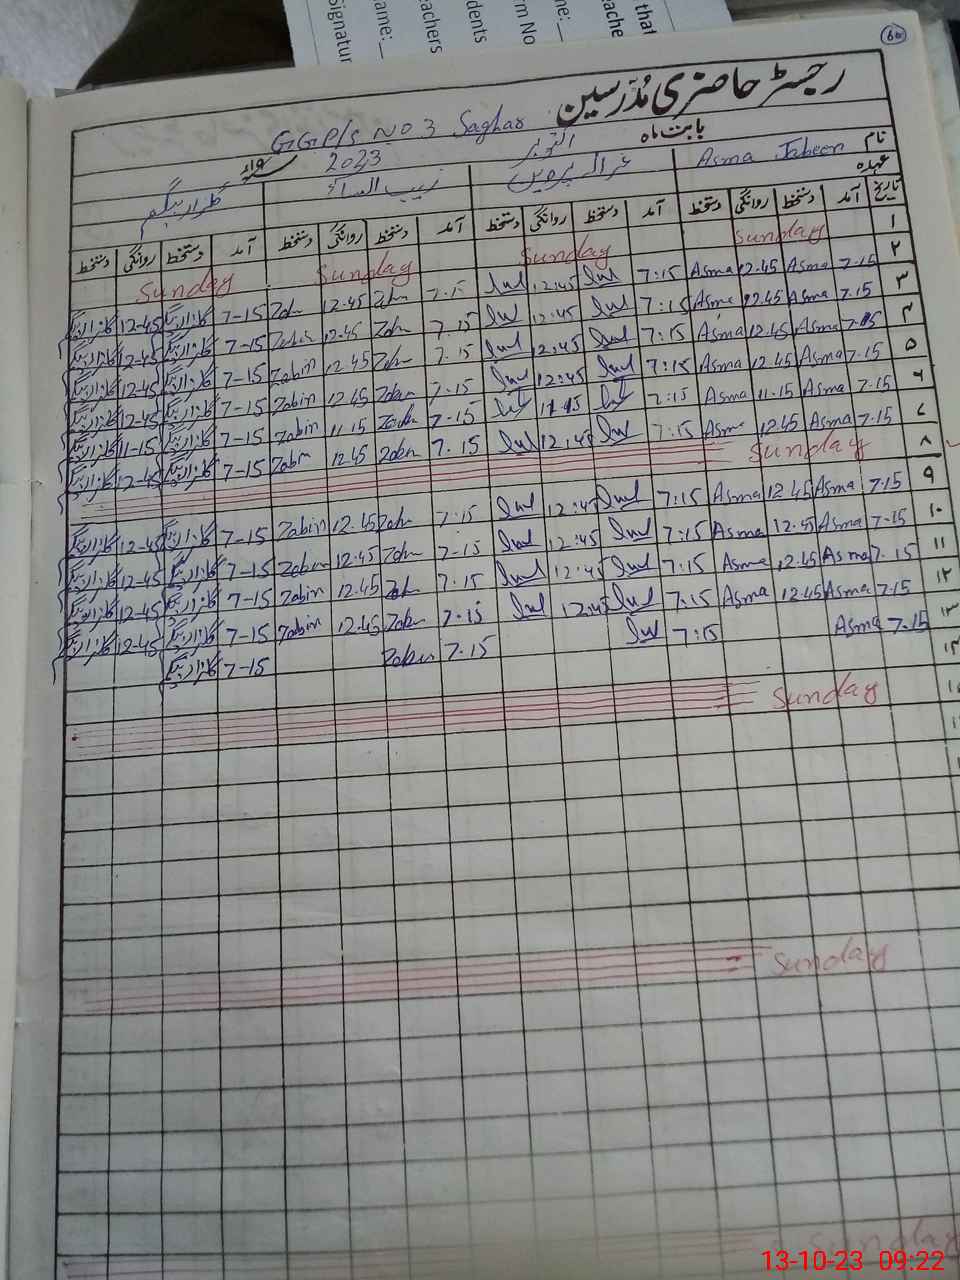 that
teache
me:_
rm No
dents
eachers
ame:_
Signatur
60
رجسٹر حاضری مُدرسین
GGP/S NO 3 Saghar بابت ماہ اکتوبر 2023
نام Asma Jabeen غزالہ پروین زیب النساء گلزار بیگم
عہدہ
تاریخ آمد دستخط روانگی دستخط آمد دستخط روانگی دستخط آمد دستخط روانگی دستخط آمد دستخط روانگی دستخط
۱ Sunday Sunday Sunday Sunday
۲ 7.15 Asma 12.45 Asma 7:15 12:45 7.15 12.45 7-15 گلزار بیگم 12-45 گلزار بیگم
۳ 7.15 Asma 12.45 Asma 7:15 12:45 7.15 12.45 7-15 گلزار بیگم 12-45 گلزار بیگم
۴ 7.15 Asma 12.45 Asma 7:15 12:45 7.15 12.45 Zabin 7-15 گلزار بیگم 12-45 گلزار بیگم
۵ 7.15 Asma 12.45 Asma 7:15 12:45 7.15 12.45 Zabin 7-15 گلزار بیگم 12-45 گلزار بیگم
۶ 7.15 Asma 11.15 Asma 7:15 11.15 7.15 11.15 Zabin 7-15 گلزار بیگم 11-15 گلزار بیگم
۷ 7.15 Asma 12.45 Asma 7:15 12:45 7.15 Zabin 12.45 Zabin 7-15 گلزار بیگم 12-45 گلزار بیگم
۸ Sunday
۹ 7.15 Asma 12.45 Asma 7:15 12:45 7.15 12.45 Zabin 7-15 گلزار بیگم 12-45 گلزار بیگم
۱۰ 7.15 Asma 12.45 Asma 7:15 12:45 7-15 12.45 Zabin 7-15 گلزار بیگم 12-45 گلزار بیگم
۱۱ 7.15 Asma 12.45 Asma 7:15 12:45 7.15 12.45 Zabin 7-15 گلزار بیگم 12-45 گلزار بیگم
۱۲ 7.15 Asma 12.45 Asma 7:15 12:45 7.15 Zabin 12.45 Zabin 7-15 گلزار بیگم 12-45 گلزار بیگم
۱۳ 7.15 Asma 7:15 7.15 Zabin 7-15 گلزار بیگم
۱۴
Sunday
Sunday
Sunday
13-10-23 09:22